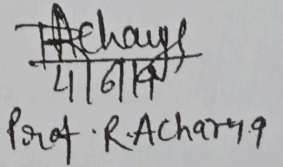 Acharya
4/6/19
Prof. R. Acharya